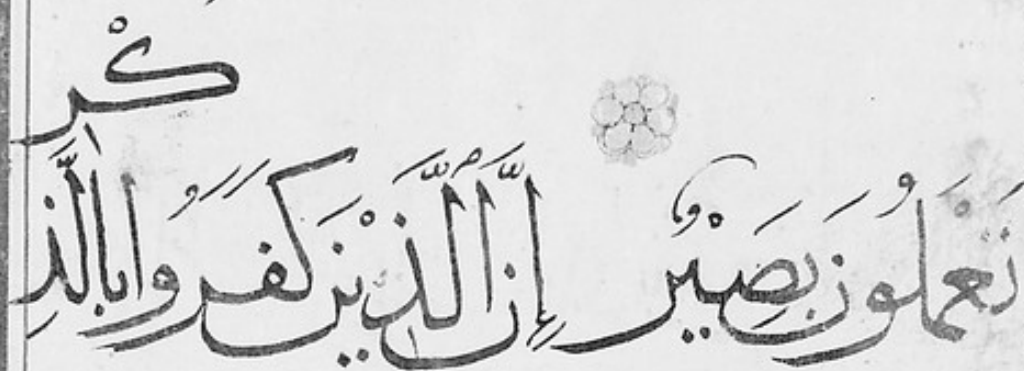 كْرِ
تَعْمَلُونَ بَصِيْرٌ إِنَّ ٱلَّذِيْنَ كَفَرَوُا بِالَّذِ